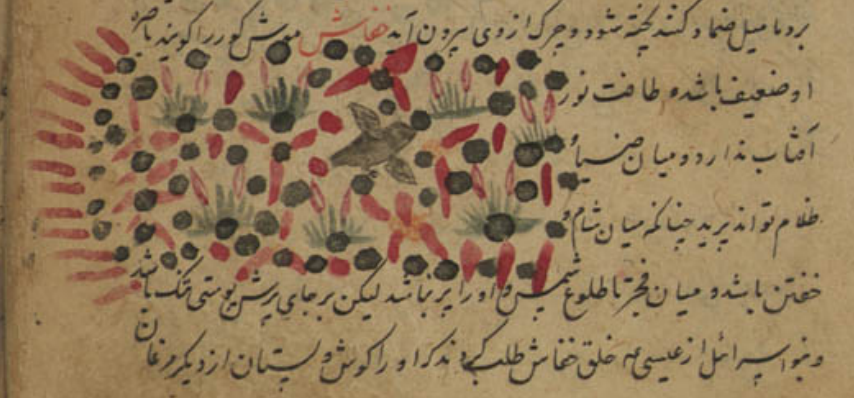 بر دمامیل ضماد کنند پخته شود و چرک از وی بیرون آید خفاش موش کور را گویند باصره
او ضعیف باشد و طاقت نور
آفتاب ندارد و میان ضیا و
ظلام تواند پرید چنانکه میان شام و
خفتن باشد و میان فجر تا طلوع شمس و او را پر نباشد لیکن بر جای پرش پوستی تنک باشد
و بنو اسرائیل از عیسی عم خلق خفاش طلب کردند که او را گوش و پستان از دیگر مرغان